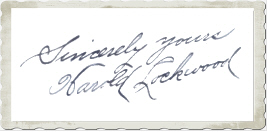 Sincerely yours
Harold Lockwood